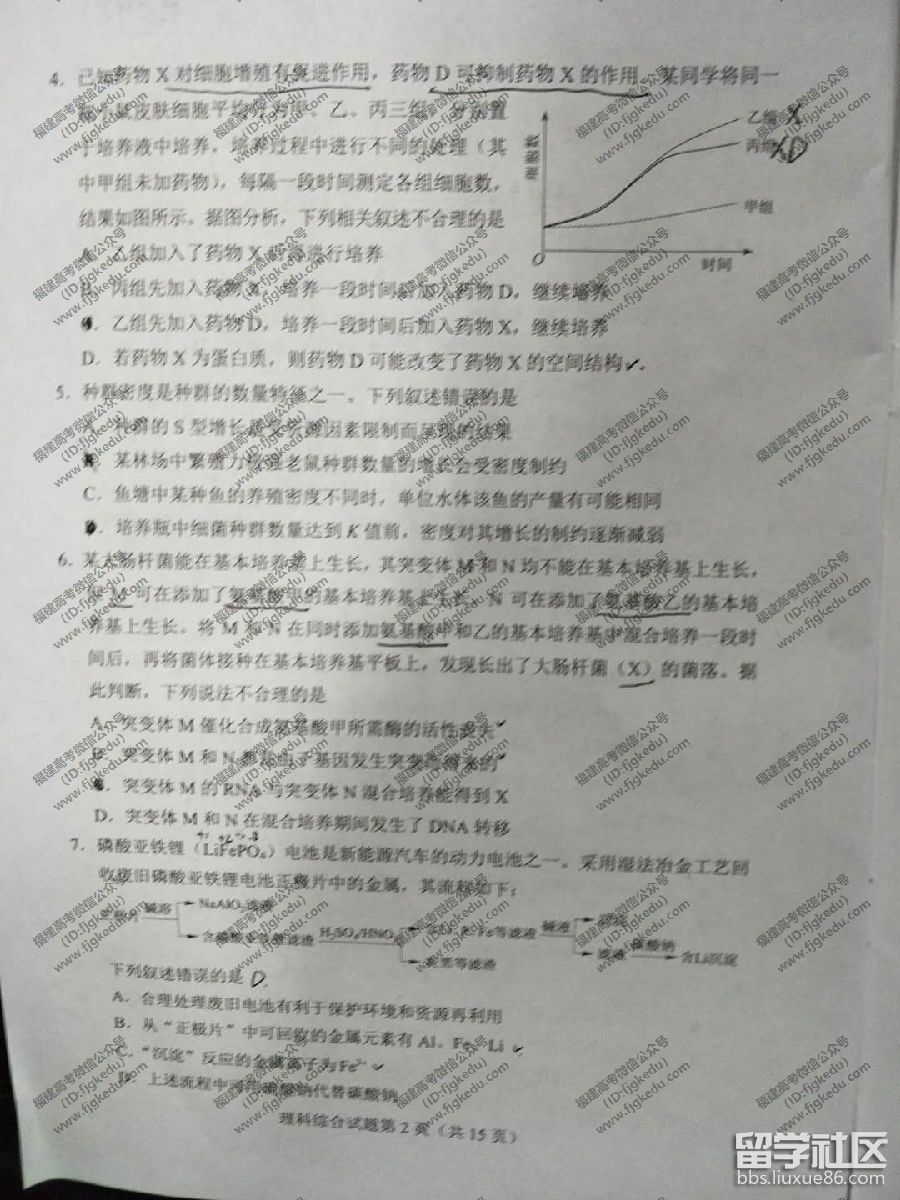 4. 已知药物 X 对细胞增殖有促进作用，药物 D 可抑制药物 X 的作用。某同学将同一
瓶小鼠皮肤细胞平均分为甲、乙、丙三组，分别置
于培养液中培养，培养过程中进行不同的处理（其
中甲组未加药物），每隔一段时间测定各组细胞数，
结果如图所示。据图分析，下列相关叙述不合理的是
细胞数
乙组 X
丙组 XD
甲组
O
时间
乙组加入了药物 X 后再进行培养
丙组先加入药物 X，培养一段时间后加入药物 D，继续培养
乙组先加入药物 D，培养一段时间后加入药物 X，继续培养
D. 若药物 X 为蛋白质，则药物 D 可能改变了药物 X 的空间结构
5. 种群密度是种群的数量特征之一。下列叙述错误的是
种群的 S 型增长是受资源因素限制而呈现的结果
某林场中繁殖力极强老鼠种群数量的增长会受密度制约
C. 鱼塘中某种鱼的养殖密度不同时，单位水体该鱼的产量有可能相同
培养瓶中细菌种群数量达到 K 值前，密度对其增长的制约逐渐减弱
6. 某大肠杆菌能在基本培养基上生长，其突变体 M 和 N 均不能在基本培养基上生长，
但 M 可在添加了氨基酸甲的基本培养基上生长，N 可在添加了氨基酸乙的基本培
养基上生长。将 M 和 N 在同时添加氨基酸甲和乙的基本培养基中混合培养一段时
间后，再将菌体接种在基本培养基平板上，发现长出了大肠杆菌（X）的菌落。据
此判断，下列说法不合理的是
A. 突变体 M 催化合成氨基酸甲所需酶的活性丧失
B. 突变体 M 和 N 都是由于基因发生突变而得来的
突变体 M 的 RNA 与突变体 N 混合培养能得到 X
D. 突变体 M 和 N 在混合培养期间发生了 DNA 转移
7. 磷酸亚铁锂（LiFePO₄）电池是新能源汽车的动力电池之一。采用湿法冶金工艺回
收废旧磷酸亚铁锂电池正极片中的金属，其流程如下：
正极片 碱溶 NaAlO₂滤液
含磷酸亚铁锂滤渣 H₂SO₄/HNO₃ 含Li、P、Fe等滤液 碱液 沉淀
炭黑等滤渣
滤液 碳酸钠 含Li沉淀
下列叙述错误的是 D
A. 合理处理废旧电池有利于保护环境和资源再利用
B. 从“正极片”中可回收的金属元素有 Al、Fe、Li
C. “沉淀”反应的金属离子为
上述流程中可用硫酸钠代替碳酸钠
理科综合试题第 2 页（共 15 页）
福建高考微信公众号
(ID:fjgkedu)
www.fjgkedu.com
留学社区
bbs.liuxue86.com